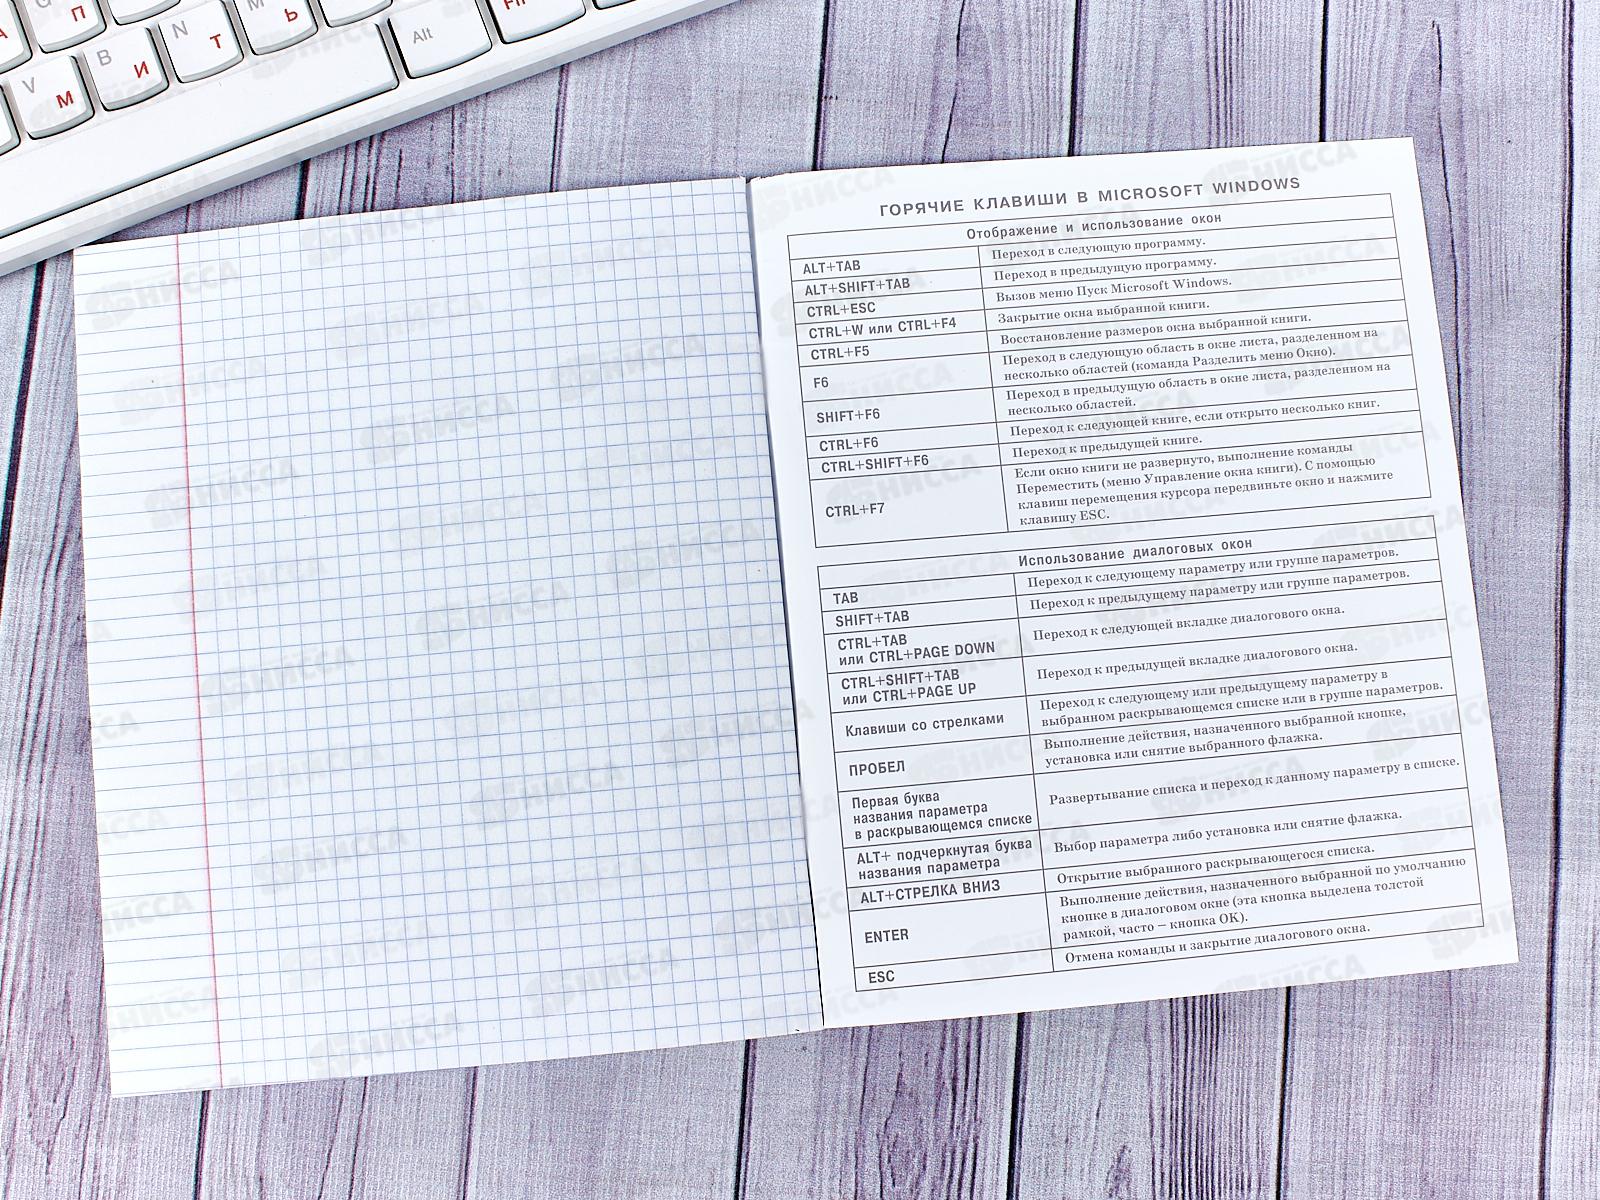 П
Ь
Alt
V
М
B
И
N
Т
М
НИССА
ГОРЯЧИЕ КЛАВИШИ В MICROSOFT WINDOWS
Отображение и использование окон
ALT+TAB Переход в следующую программу.
ALT+SHIFT+TAB Переход в предыдущую программу.
CTRL+ESC Вызов меню Пуск Microsoft Windows.
CTRL+W или CTRL+F4 Закрытие окна выбранной книги.
CTRL+F5 Восстановление размеров окна выбранной книги.
F6 Переход в следующую область в окне листа, разделенном на
несколько областей (команда Разделить меню Окно).
SHIFT+F6 Переход в предыдущую область в окне листа, разделенном на
несколько областей.
CTRL+F6 Переход к следующей книге, если открыто несколько книг.
CTRL+SHIFT+F6 Переход к предыдущей книге.
CTRL+F7 Если окно книги не развернуто, выполнение команды
Переместить (меню Управление окна книги). С помощью
клавиш перемещения курсора передвиньте окно и нажмите
клавишу ESC.
Использование диалоговых окон
TAB Переход к следующему параметру или группе параметров.
SHIFT+TAB Переход к предыдущему параметру или группе параметров.
CTRL+TAB
или CTRL+PAGE DOWN Переход к следующей вкладке диалогового окна.
CTRL+SHIFT+TAB
или CTRL+PAGE UP Переход к предыдущей вкладке диалогового окна.
Клавиши со стрелками Переход к следующему или предыдущему параметру в
выбранном раскрывающемся списке или в группе параметров.
ПРОБЕЛ Выполнение действия, назначенного выбранной кнопке,
установка или снятие выбранного флажка.
Первая буква
названия параметра
в раскрывающемся списке Развертывание списка и переход к данному параметру в списке.
ALT+ подчеркнутая буква
названия параметра Выбор параметра либо установка или снятие флажка.
ALT+СТРЕЛКА ВНИЗ Открытие выбранного раскрывающегося списка.
ENTER Выполнение действия, назначенного выбранной по умолчанию
кнопке в диалоговом окне (эта кнопка выделена толстой
рамкой, часто – кнопка OK).
ESC Отмена команды и закрытие диалогового окна.